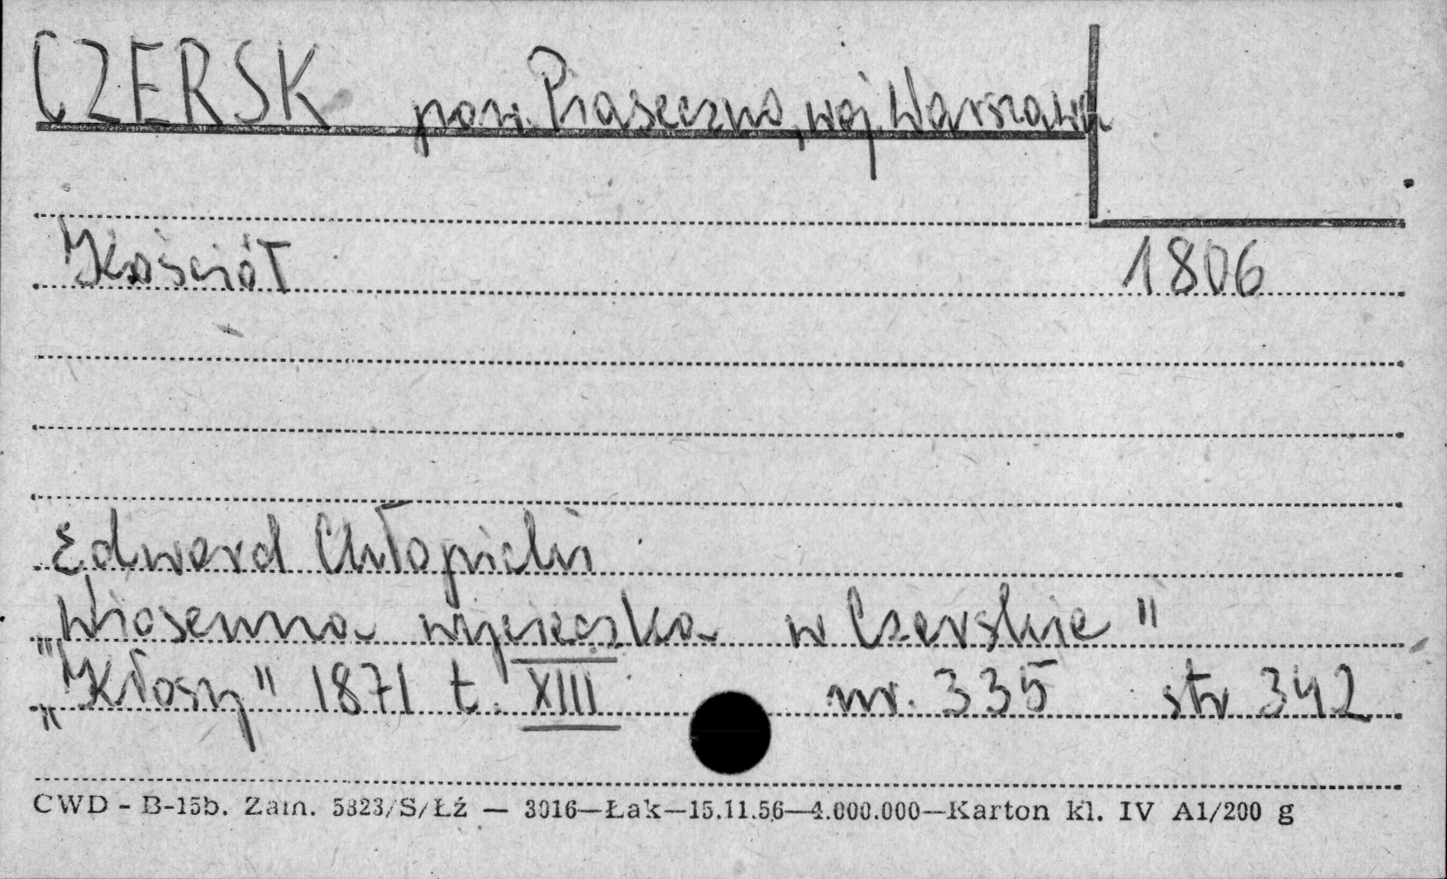 CZERSK pow. Piaseczno, woj. Warszawa
Kościół 1806
Edward Chłopicki
„Wiosenna wycieczka w Czerskie"
„Kłosy" 1871 t. XIII nr. 335 str 342
CWD - B-15b. Zam. 5823/S/Łź — 3016—Łak—15.11.56—4.000.000—Karton kl. IV A1/200 g